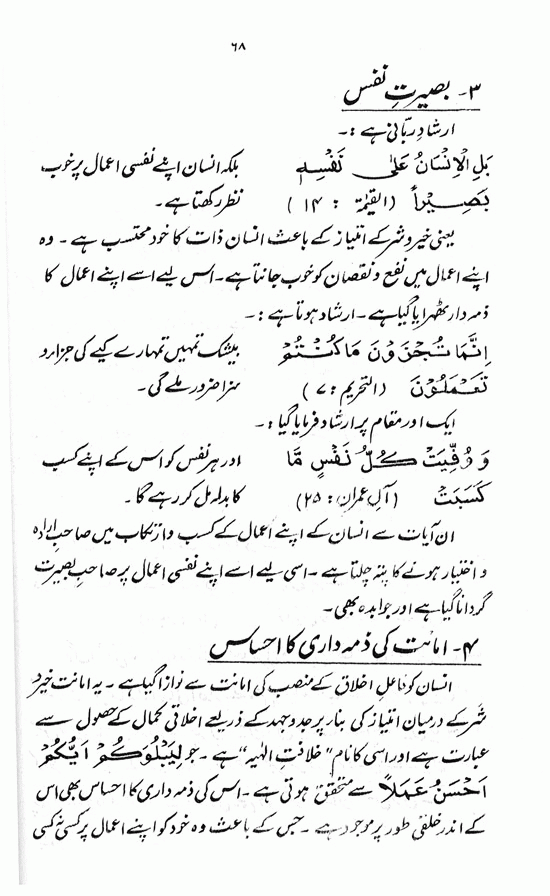 ۶۸
۳۔ بصیرتِ نفس
ارشادِ ربانی ہے :۔
بَلِ الْاِنْسَانُ عَلٰی نَفْسِهٖ بلکہ انسان اپنے نفسی اعمال پر خوب
بَصِیْرَةٌ (القیٰمۃ : ۱۴) نظر رکھتا ہے۔
یعنی خیر و شر کے امتیاز کے باعث انسان ذات کا خود محتسب ہے ۔ وہ
اپنے اعمال میں نفع و نقصان کو خوب جانتا ہے۔ اس لیے اسے اپنے اعمال کا
ذمہ دار ٹھہرایا گیا ہے ۔ ارشاد ہوتا ہے :۔
اِنَّمَا تُجْزَوْنَ مَا كُنْتُمْ بیشک تمہیں تمہارے کیے کی جزا و
تَعْمَلُوْنَ (التحریم : ۷) سزا ضرور ملے گی۔
ایک اور مقام پر ارشاد فرمایا گیا :۔
وَ وُفِّیَتْ كُلُّ نَفْسٍ مَّا اور ہر نفس کو اس کے اپنے کسب
كَسَبَتْ (آلِ عمران : ۲۵) کا بدلہ مل کر رہے گا۔
ان آیات سے انسان کے اپنے اعمال کے کسب و ارتکاب میں صاحبِ ارادہ
و اختیار ہونے کا پتہ چلتا ہے ۔ اسی لیے اسے اپنے نفسی اعمال پر صاحبِ بصیرت
گردانا گیا ہے اور جوابدہ بھی۔
۴۔ امانت کی ذمہ داری کا احساس
انسان کو فاعلِ اخلاق کے منصب کی امانت سے نوازا گیا ہے ۔ یہ امانت خیر و
شر کے درمیان امتیاز کی بنا پر جدوجہد کے ذریعے اخلاقی کمال کے حصول سے
عبارت ہے اور اسی کا نام "خلافتِ الٰہیہ" ہے ۔ جو لِیَبْلُوَكُمْ اَیُّكُمْ
اَحْسَنُ عَمَلًا سے متحقق ہوتی ہے ۔ اس کی ذمہ داری کا احساس بھی اس
کے اندر خلقی طور پر موجود ہے ۔ جس کے باعث وہ خود کو اپنے اعمال پر کسی نہ کسی